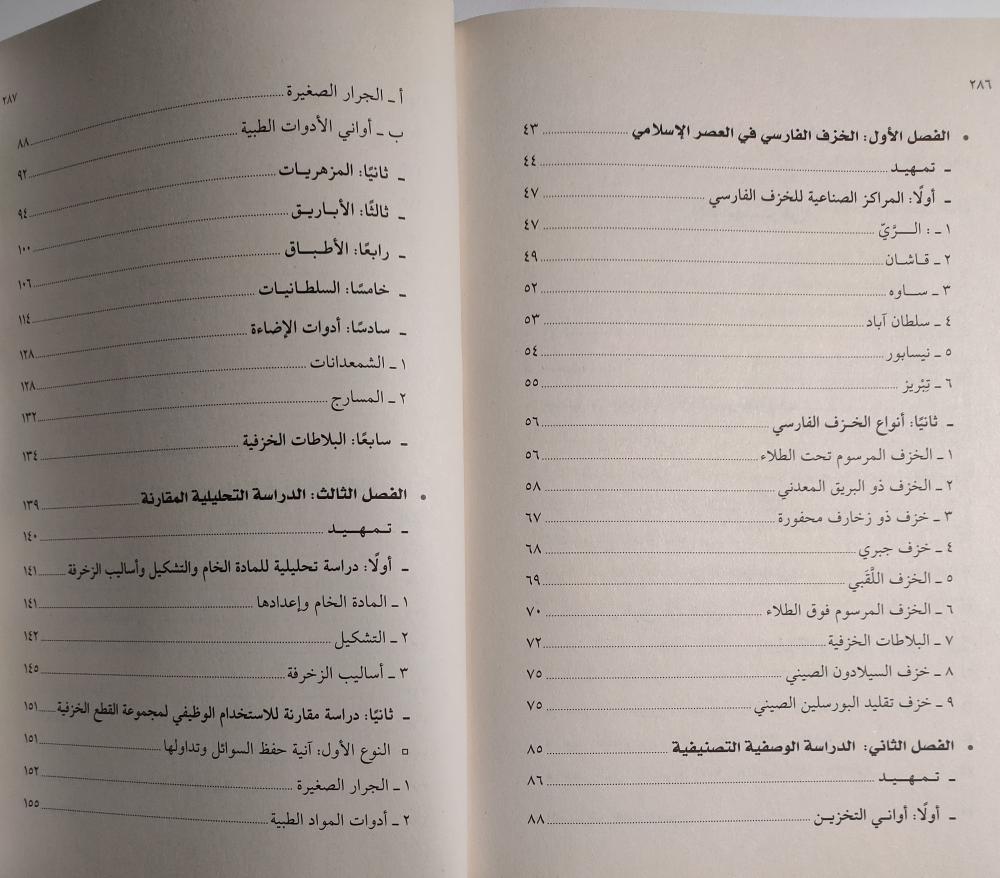 ٢٨٦
• الفصل الأول: الخزف الفارسي في العصر الإسلامي ........ ٤٣
ـ تمـهيـد ........ ٤٤
ـ أولًا: المراكز الصناعية للخزف الفارسي ........ ٤٧
١ ـ : الـــرَّيّ ........ ٤٧
٢ ـ قـاشـان ........ ٤٩
٣ ـ ســاوه ........ ٥٢
٤ ـ سلطان آباد ........ ٥٣
٥ ـ نيسابور ........ ٥٤
٦ ـ تِبْريز ........ ٥٥
ـ ثانيًا: أنواع الخـزف الفارسي ........ ٥٦
١ ـ الخزف المرسوم تحت الطلاء ........ ٥٦
٢ ـ الخزف ذو البريق المعدني ........ ٥٨
٣ ـ خزف ذو زخارف محفورة ........ ٦٧
٤ ـ خزف جبري ........ ٦٨
٥ ـ الخزف اللَّقَبي ........ ٦٩
٦ ـ الخزف المرسوم فوق الطلاء ........ ٧٠
٧ ـ البلاطات الخزفية ........ ٧٢
٨ ـ خزف السيلادون الصيني ........ ٧٥
٩ ـ خزف تقليد البورسلين الصيني ........ ٧٥
• الفصل الثاني: الدراسة الوصفية التصنيفية ........ ٨٥
ـ تـمـهـيـد ........ ٨٦
ـ أولًا: أوانـي التخزيـن ........ ٨٨
٢٨٧
أ ـ الجرار الصغيرة ........ ٨٨
ب ـ أواني الأدوات الطبية ........ ٩٢
ـ ثانيًا: المزهريـات ........ ٩٤
ـ ثالثًا: الأبـاريـق ........ ١٠٠
ـ رابعًا: الأطـبـاق ........ ١٠٦
ـ خامسًا: السلطـانيـات ........ ١١٤
ـ سادسًا: أدوات الإضاءة ........ ١٢٨
١ ـ الشمعدانات ........ ١٢٨
٢ ـ المسارج ........ ١٣٢
ـ سابعًا: البلاطات الخزفية ........ ١٣٤
• الفصل الثالث: الدراسة التحليلية المقارنة ........ ١٣٩
ـ تـمـهـيـد ........ ١٤٠
ـ أولًا: دراسة تحليلية للمادة الخام والتشكيل وأساليب الزخرفة ........ ١٤١
١ ـ المادة الخام وإعدادها ........ ١٤١
٢ ـ التشكيل ........ ١٤٢
٣ ـ أساليب الزخرفة ........ ١٤٥
ـ ثانيًا: دراسة مقارنة للاستخدام الوظيفي لمجموعة القطع الخزفية ........ ١٥١
□ النوع الأول: آنية حفظ السوائل وتداولها ........ ١٥١
١ ـ الجرار الصغيرة ........ ١٥٢
٢ ـ أدوات المواد الطبية ........ ١٥٥